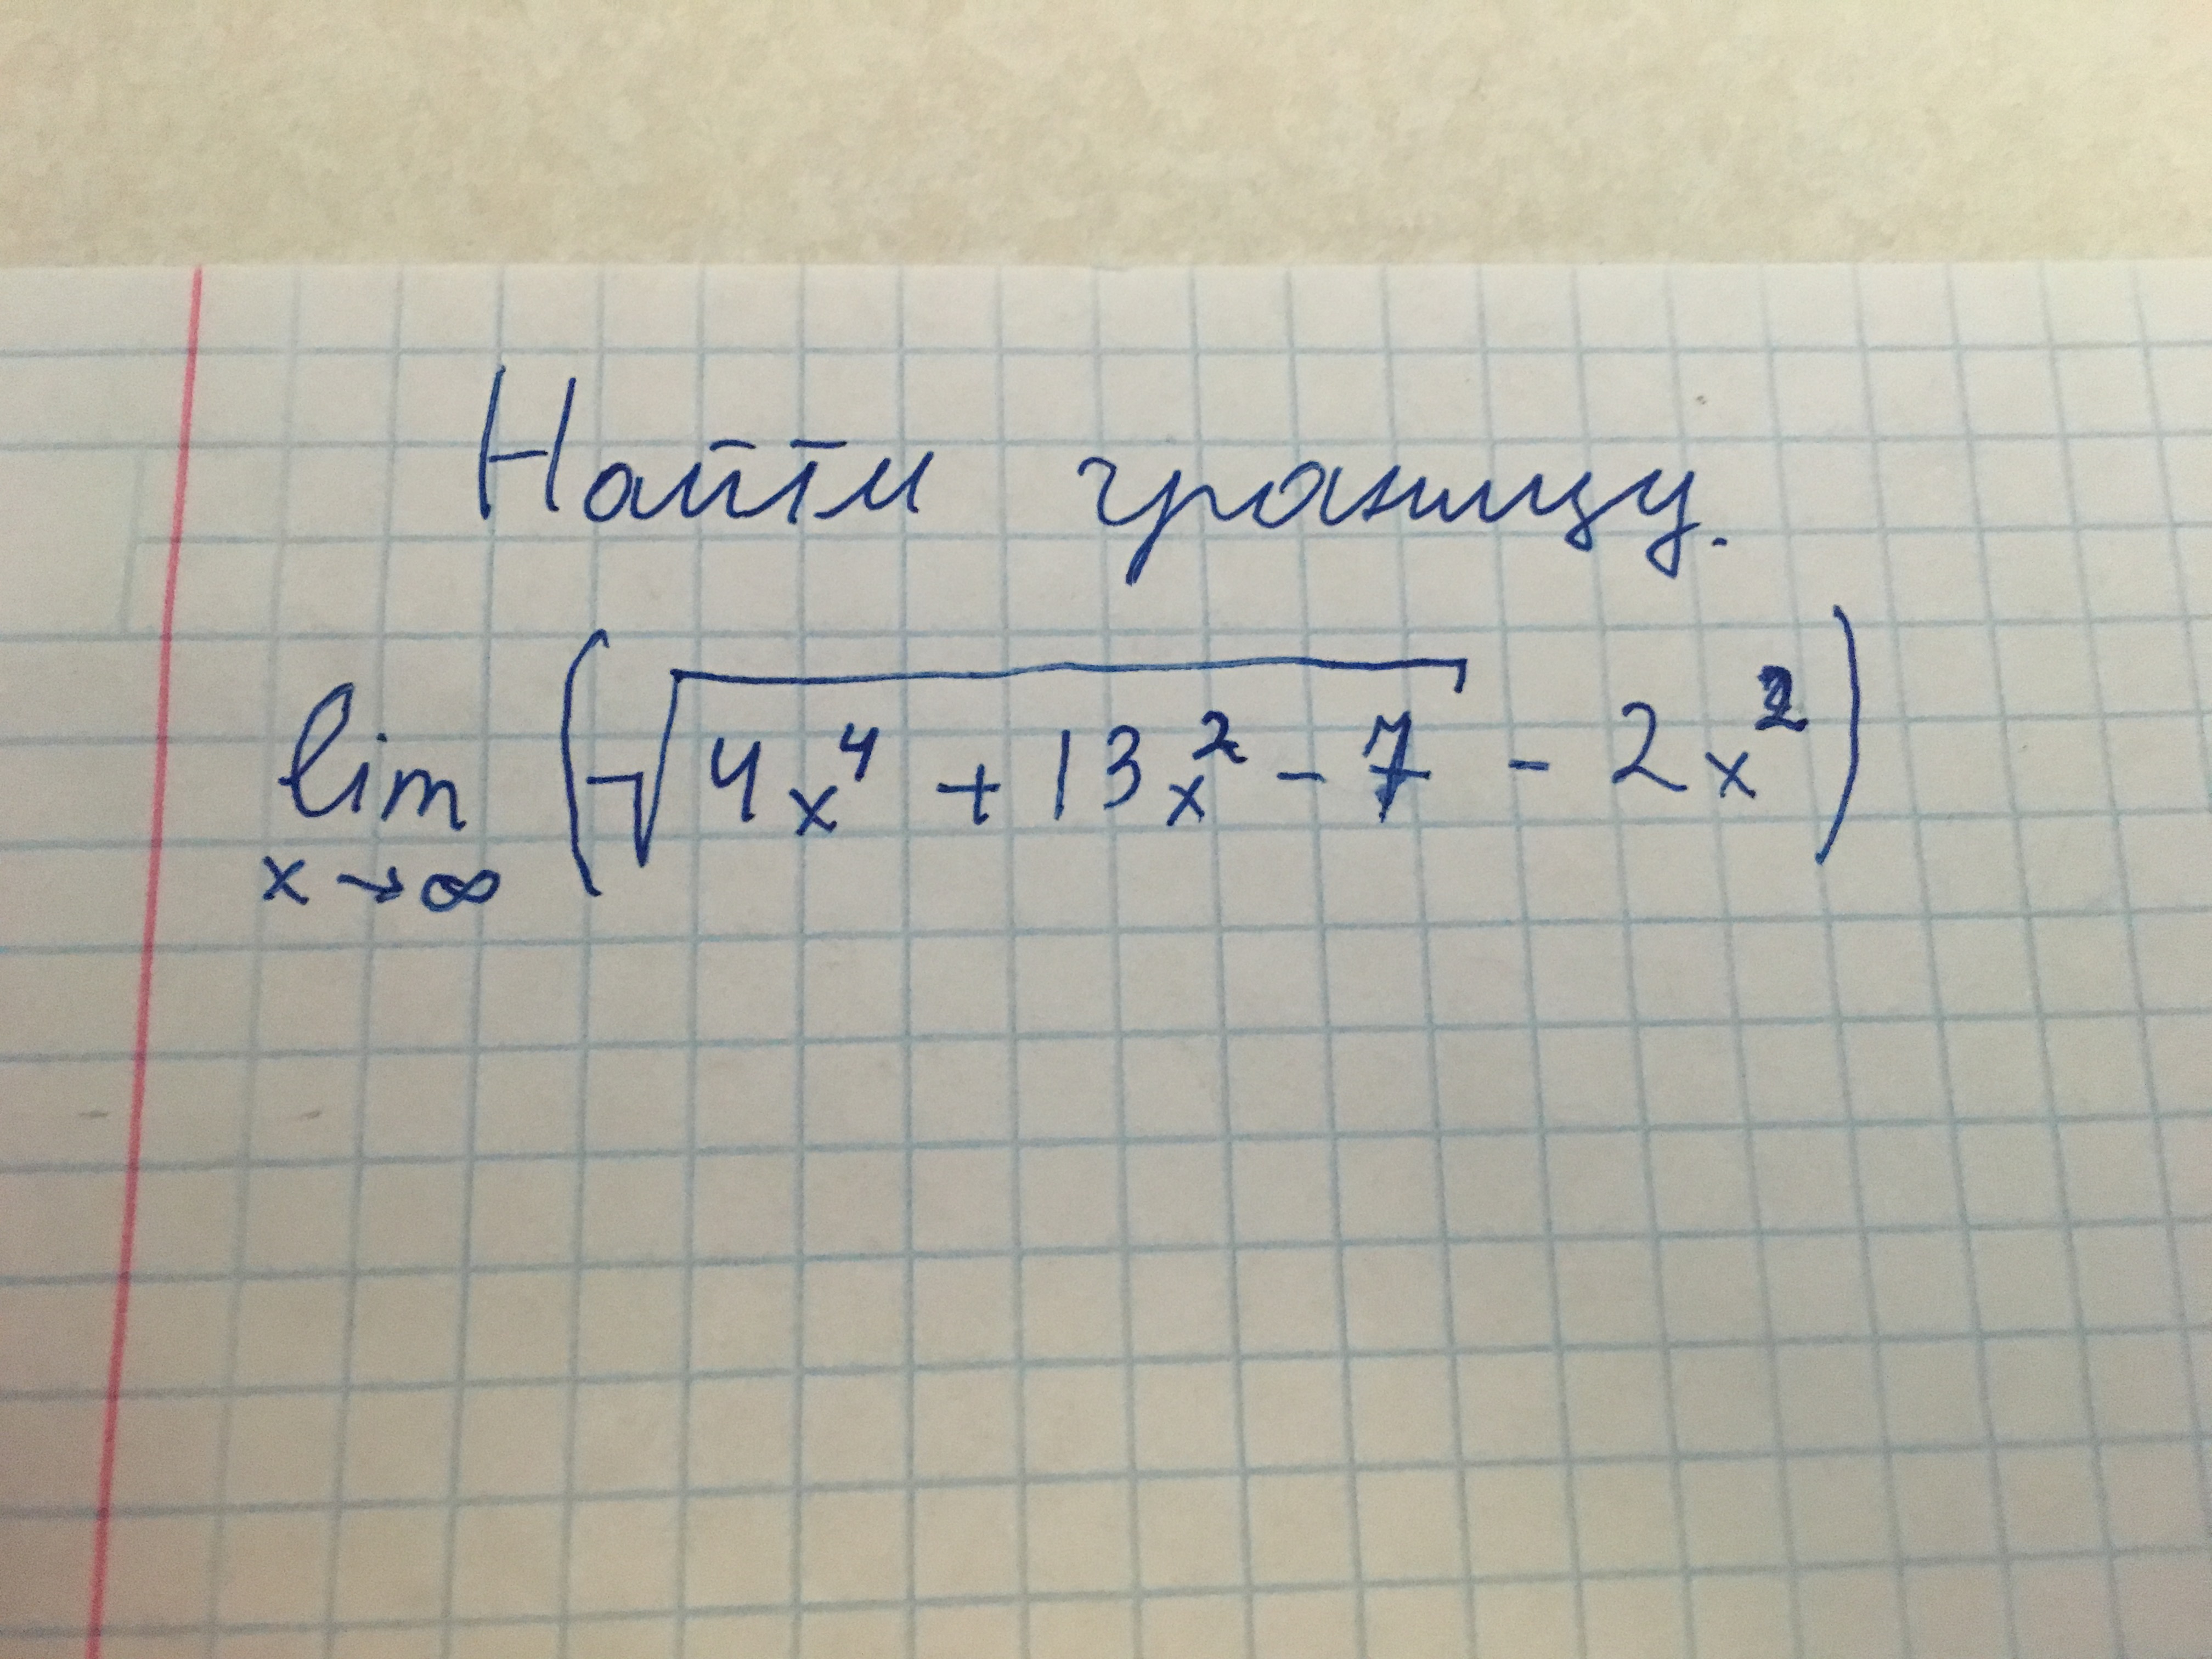 Найти границу.
lim (√4x⁴ + 13x² - 7 - 2x²)
x → ∞